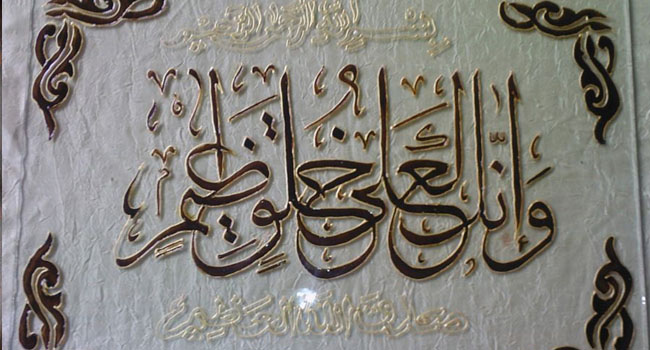 بسم الله الرحمن الرحيم
وَإنَّكَ لَعَلىٰ خُلُقٍ عَظِيمٍ
صدق الله العظيم